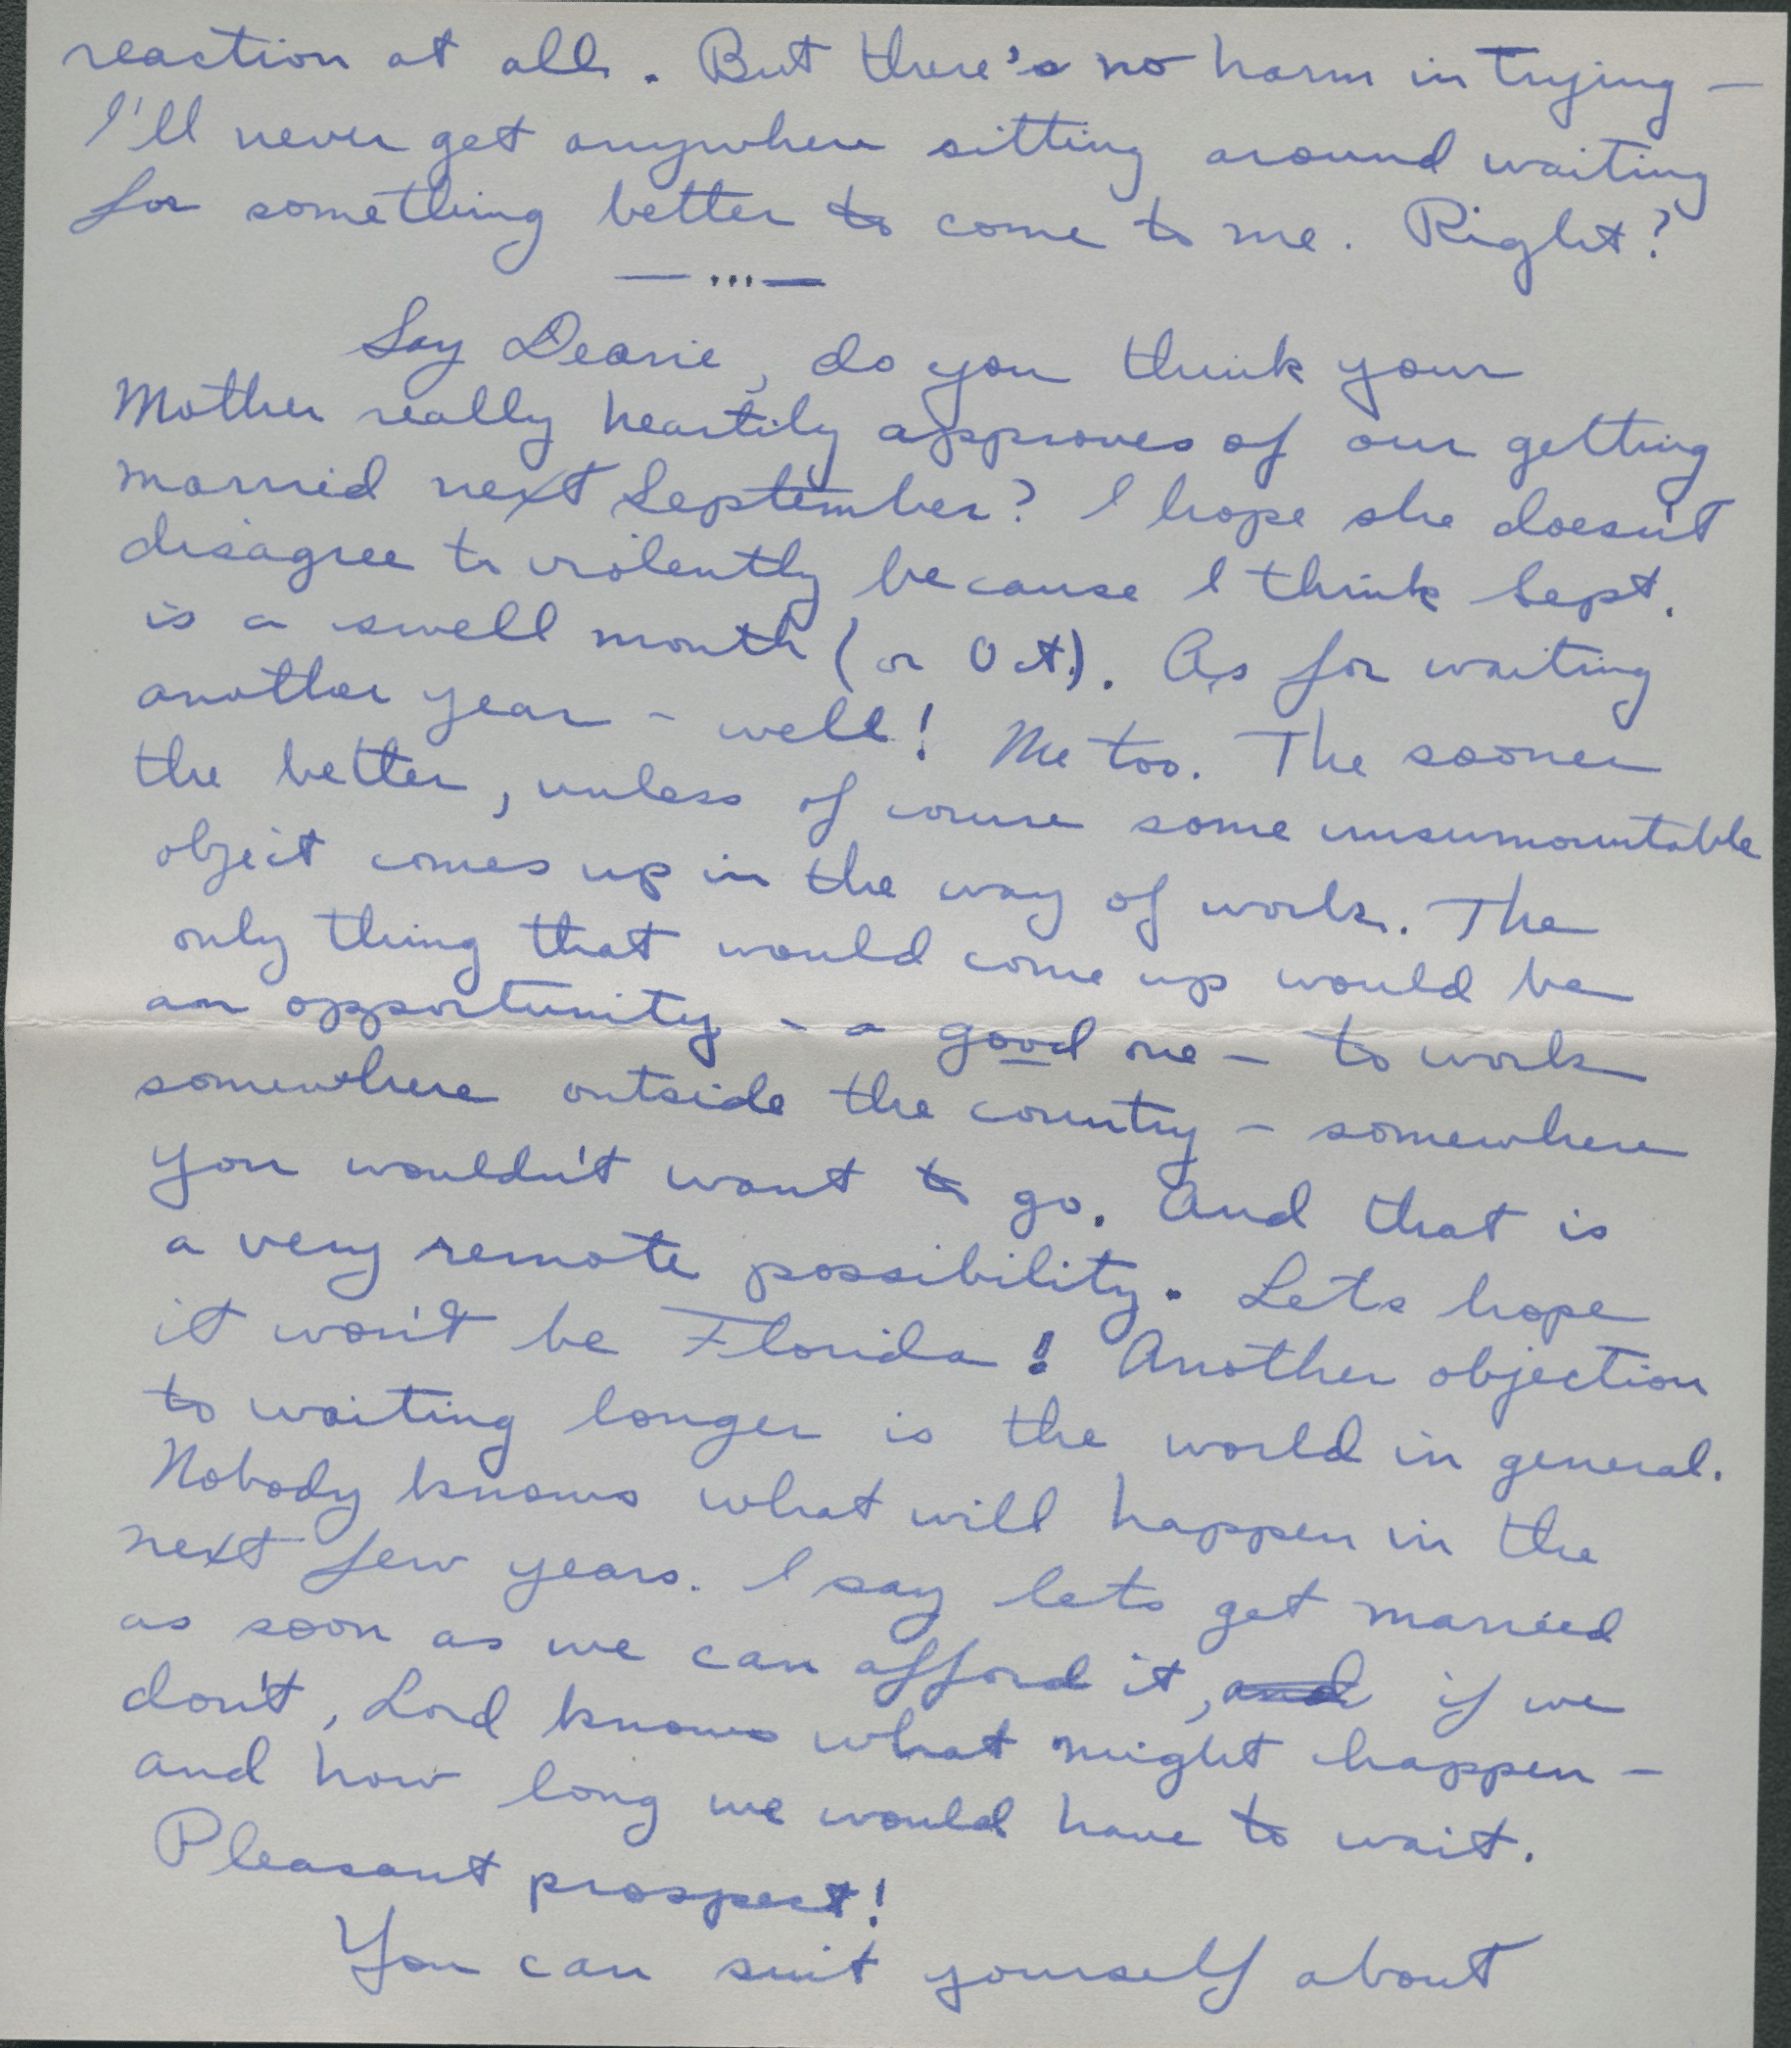 reaction at all. But there's no harm in trying —
I'll never get anywhere sitting around waiting
for something better to come to me. Right?
— ... —
Say Dearie, do you think your
Mother really heartily approves of our getting
married next September? I hope she doesn't
disagree to violently because I think Sept.
is a swell month (or Oct.). As for waiting
another year - well! Me too. The sooner
the better, unless of course some unsurmountable
object comes up in the way of work. The
only thing that would come up would be
an opportunity - a good one - to work
somewhere outside the country - somewhere
you wouldn't want to go. And that is
a very remote possibility. Lets hope
it won't be Florida! Another objection
to waiting longer is the world in general.
Nobody knows what will happen in the
next few years. I say lets get married
as soon as we can afford it, and if we
don't, Lord knows what might happen —
and how long we would have to wait.
Pleasant prospect!
You can suit yourself about